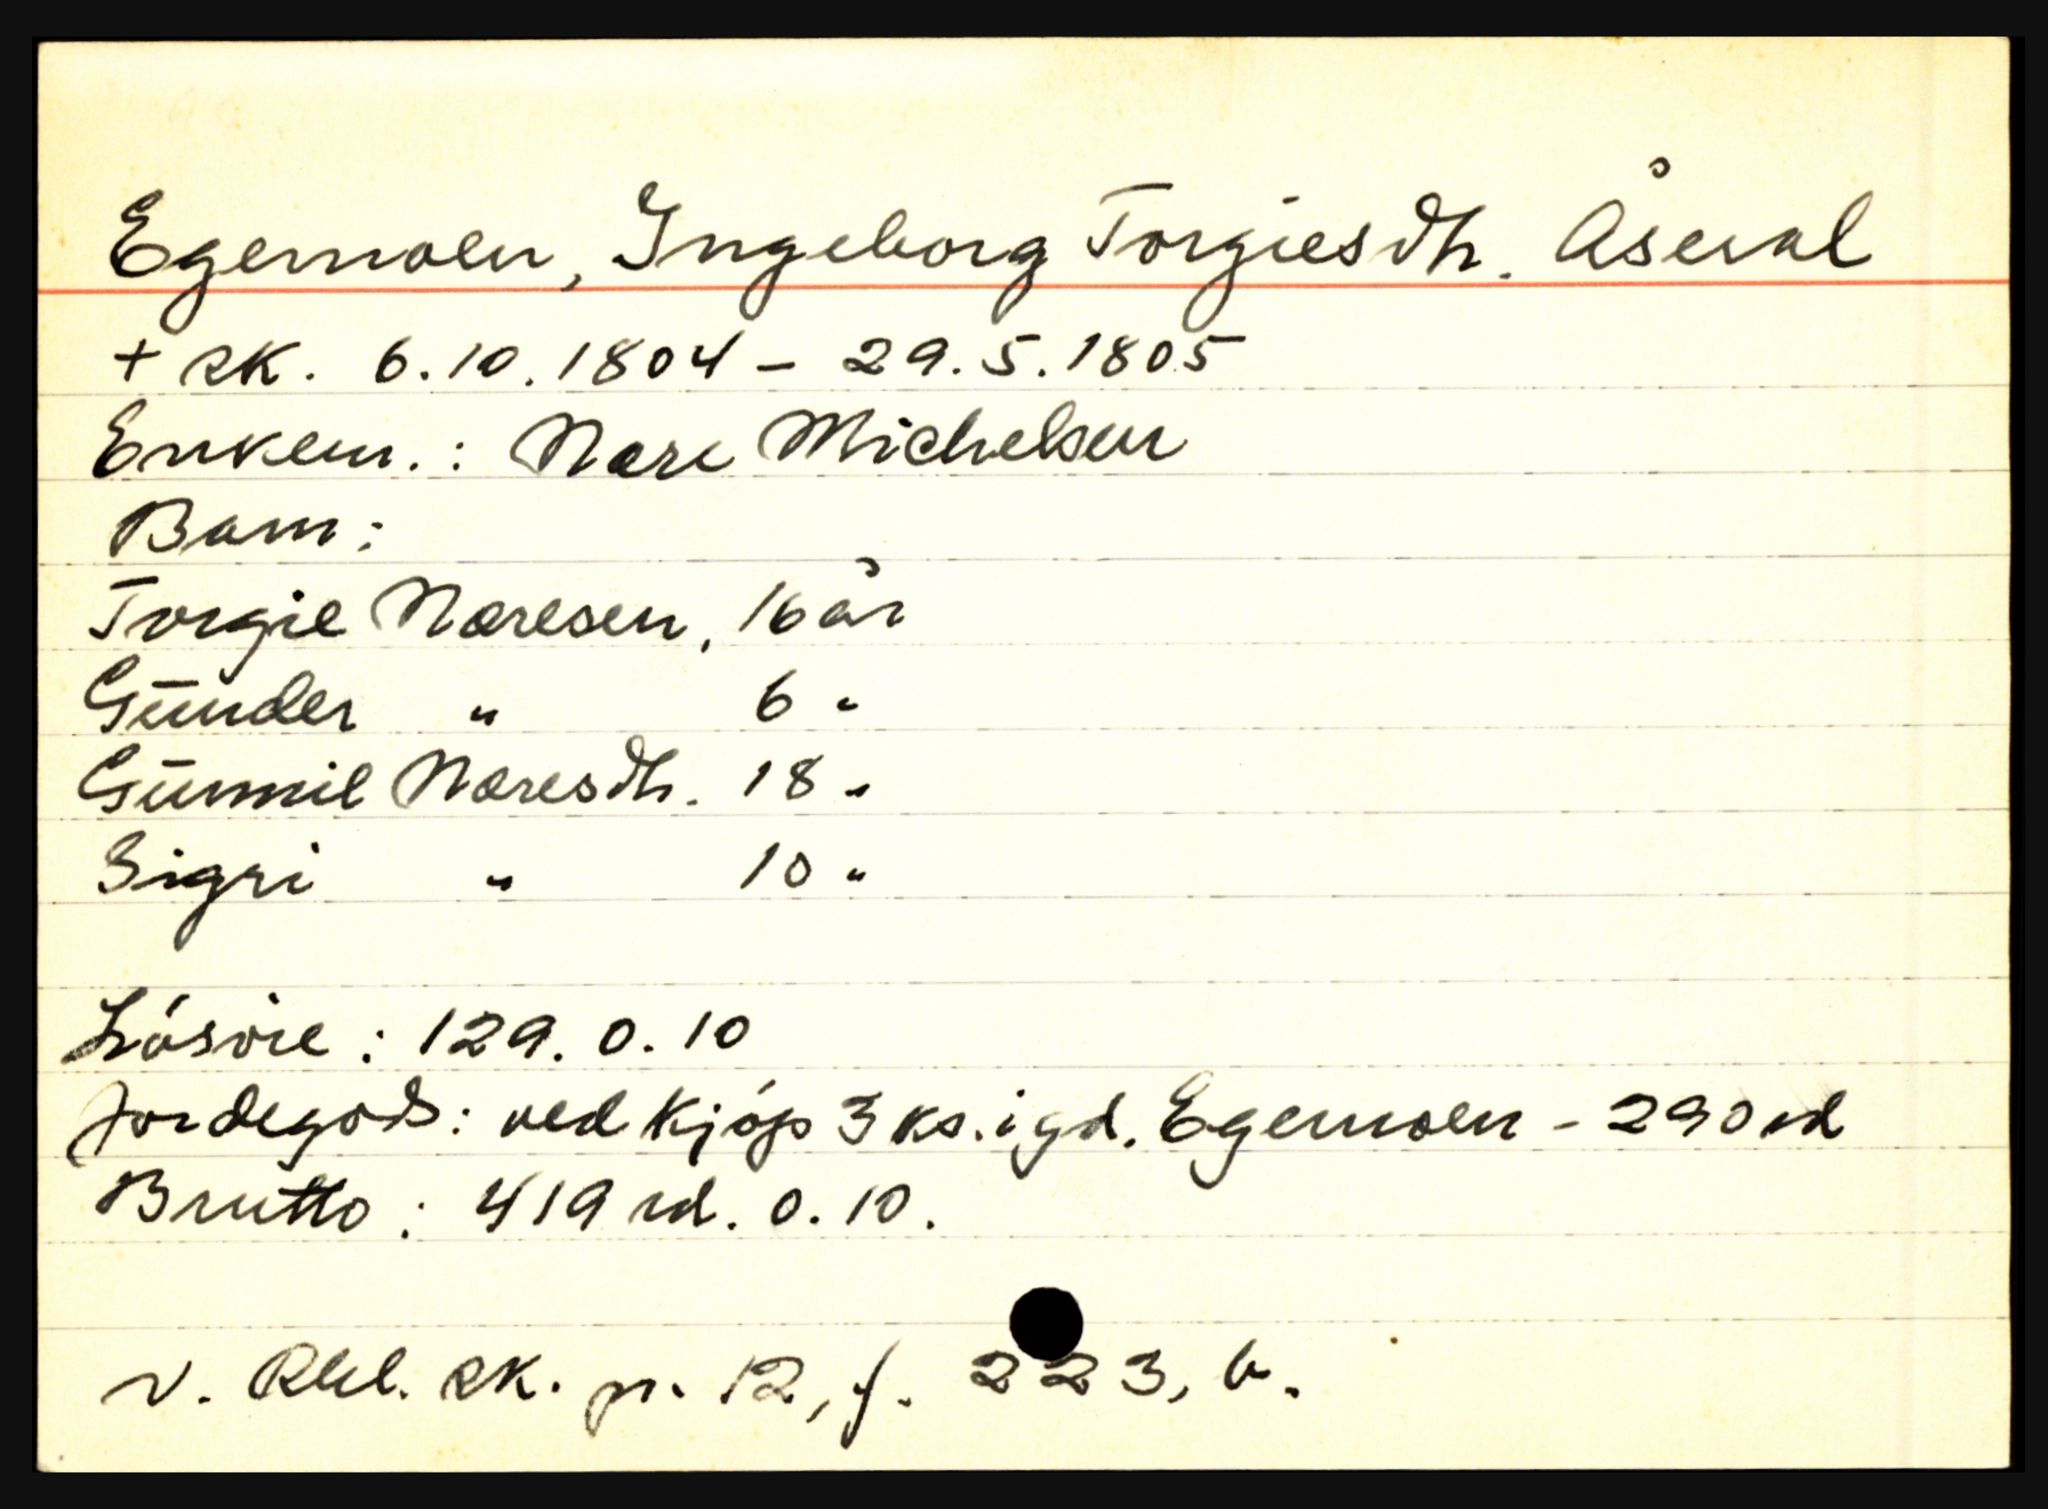 Egemoen, Ingeborg Torgiesdtr. Åseral
+ sk. 6.10.1804 - 29.5.1805
Enkem.: Nære Michelsen
Barn:
Torgie Næresen, 16 år
Gunder " 6 "
Gunnil Næresdtr. 18 "
Sigri " 10 "
Lösöre: 129. 0. 10
Jordegods: ved kjöp 3 ks. i gd. Egemoen - 290 rd
Brutto: 419 rd. 0. 10.
v. Rbl. sk. pr. 12, f. 223, b.